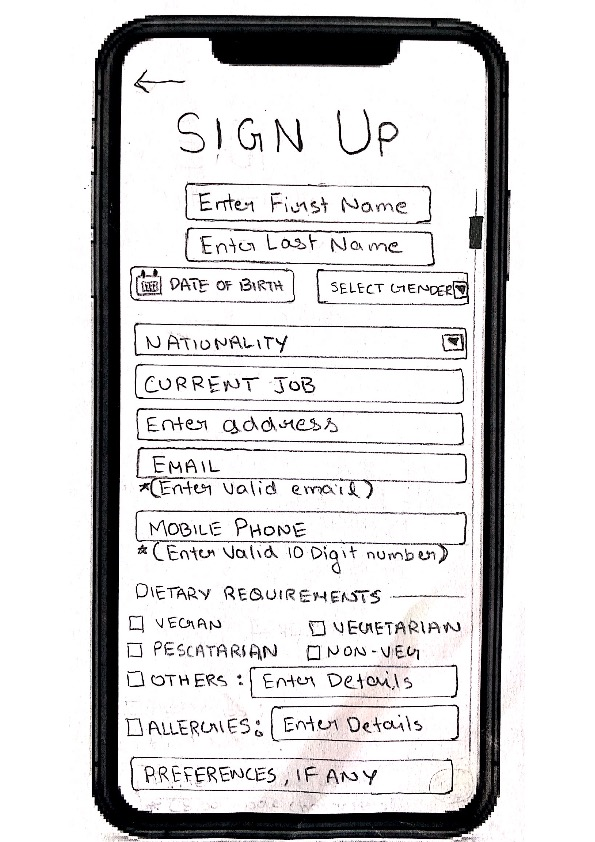 SIGN UP
Enter First Name
Enter Last Name
DATE OF BIRTH
SELECT GENDER
NATIONALITY
CURRENT JOB
Enter address
EMAIL
*(Enter valid email)
MOBILE PHONE
*(Enter Valid 10 Digit number)
DIETARY REQUIREMENTS
VEGAN
VEGETARIAN
PESCATARIAN
NON-VEG
OTHERS : Enter Details
ALLERGIES: Enter Details
PREFERENCES, IF ANY